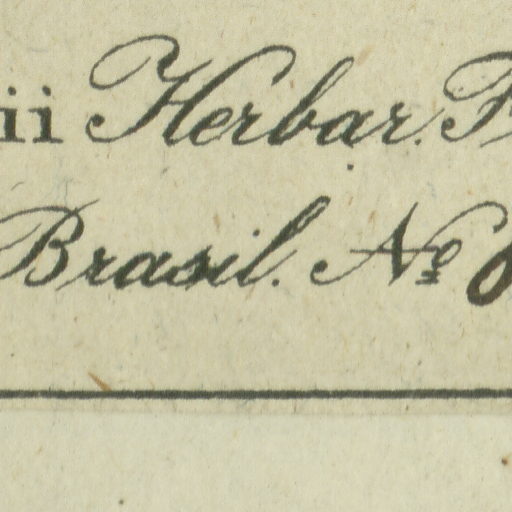 ii Herbar. F
Brasil. Nº